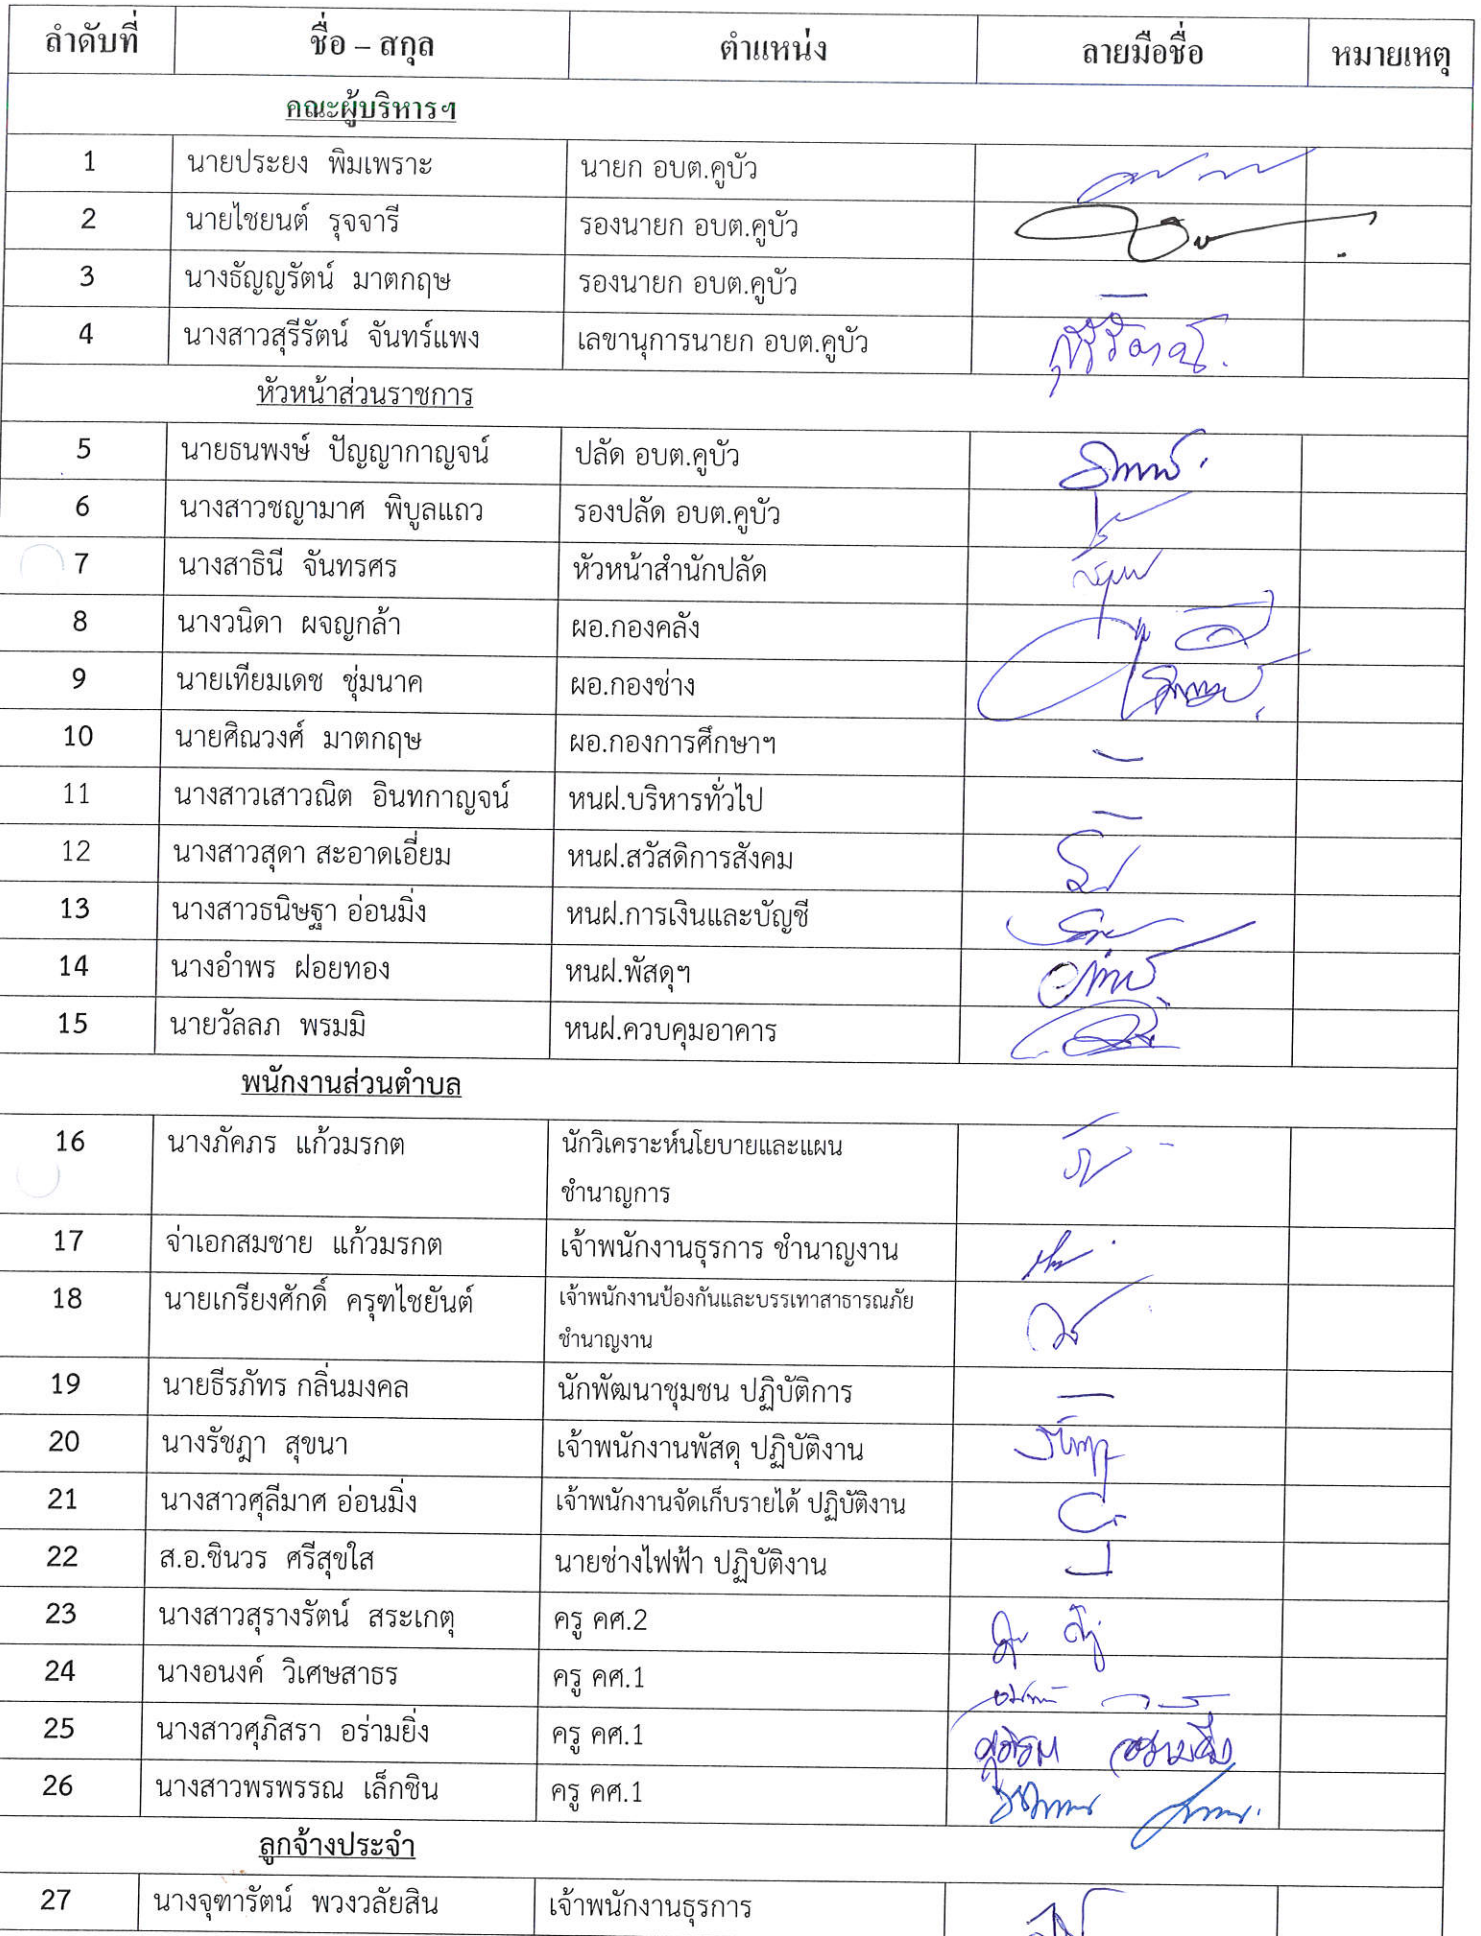 ลำดับที่ ชื่อ – สกุล ตำแหน่ง ลายมือชื่อ หมายเหตุ
คณะผู้บริหารฯ
1 นายประยง พิมเพราะ นายก อบต.คูบัว
2 นายไชยนต์ รุจจารี รองนายก อบต.คูบัว
3 นางธัญญรัตน์ มาตกฤษ รองนายก อบต.คูบัว –
4 นางสาวสุรีรัตน์ จันทร์แพง เลขานุการนายก อบต.คูบัว
หัวหน้าส่วนราชการ
5 นายธนพงษ์ ปัญญากาญจน์ ปลัด อบต.คูบัว
6 นางสาวชญามาศ พิบูลแถว รองปลัด อบต.คูบัว
7 นางสาธินี จันทรศร หัวหน้าสำนักปลัด
8 นางวนิดา ผจญกล้า ผอ.กองคลัง
9 นายเทียมเดช ชุ่มนาค ผอ.กองช่าง
10 นายศิณวงศ์ มาตกฤษ ผอ.กองการศึกษาฯ –
11 นางสาวเสาวณิต อินทกาญจน์ หนฝ.บริหารทั่วไป –
12 นางสาวสุดา สะอาดเอี่ยม หนฝ.สวัสดิการสังคม
13 นางสาวธนิษฐา อ่อนมิ่ง หนฝ.การเงินและบัญชี
14 นางอำพร ฝอยทอง หนฝ.พัสดุฯ
15 นายวัลลภ พรมมิ หนฝ.ควบคุมอาคาร
พนักงานส่วนตำบล
16 นางภัคภร แก้วมรกต นักวิเคราะห์นโยบายและแผน
ชำนาญการ
17 จ่าเอกสมชาย แก้วมรกต เจ้าพนักงานธุรการ ชำนาญงาน
18 นายเกรียงศักดิ์ ครุฑไชยันต์ เจ้าพนักงานป้องกันและบรรเทาสาธารณภัย
ชำนาญงาน
19 นายธีรภัทร กลิ่นมงคล นักพัฒนาชุมชน ปฏิบัติการ –
20 นางรัชฎา สุขนา เจ้าพนักงานพัสดุ ปฏิบัติงาน
21 นางสาวศุลีมาศ อ่อนมิ่ง เจ้าพนักงานจัดเก็บรายได้ ปฏิบัติงาน
22 ส.อ.ชินวร ศรีสุขใส นายช่างไฟฟ้า ปฏิบัติงาน
23 นางสาวสุรางรัตน์ สระเกตุ ครู คศ.2
24 นางอนงค์ วิเศษสาธร ครู คศ.1
25 นางสาวศุภิสรา อร่ามยิ่ง ครู คศ.1
26 นางสาวพรพรรณ เล็กชิน ครู คศ.1
ลูกจ้างประจำ
27 นางจุฑารัตน์ พวงวลัยสิน เจ้าพนักงานธุรการ